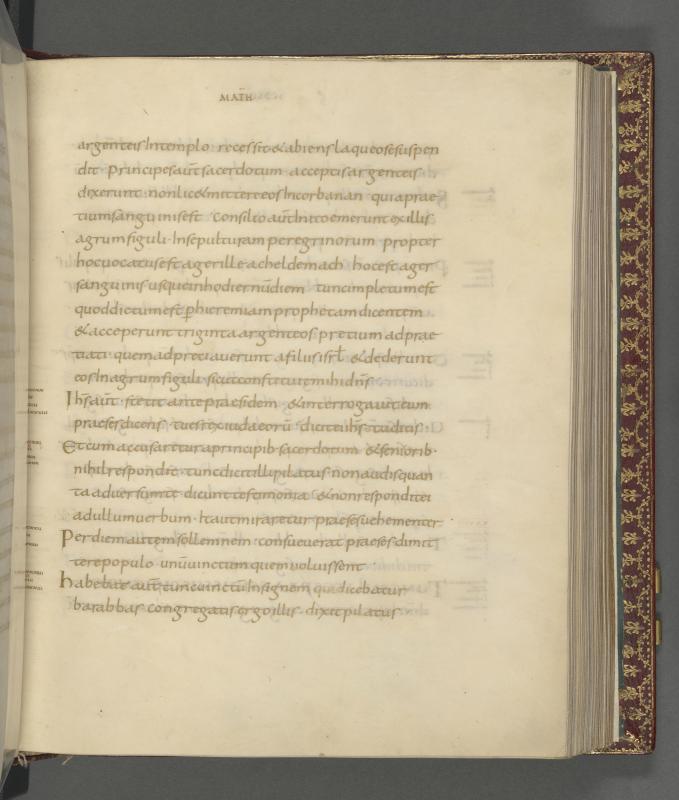 MATH
argenteis Intemplo recessit & abiens laqueo se suspen
dit Principes aut sacerdotum acceptis argenteis
dixerunt non lic& mittere eos Incorbanan quia prae
tium sanguinis est Consilio aut Inito emerunt ex illis
agrum figuli Insepulturam peregrinorum propter
hoc uocatus est ager ille acheldemach hoc est ager
sanguinis usque in hodiernū diem tunc impletum est
quod dictum est p hieremiam prophetam dicentem
& acceperunt triginta argenteos pretium adprae
tiati quem adpreciauerunt a filiis isrl & dederunt
eos In agrum figuli sicut constituit mihi dns
Ihs aut stetit ante praesidem & interrogauit eum
praeses dicens tu es rex iudaeorū dicit eis ihs tu dicis
Et cum accusaretur a principib sacerdotum & seniorib
nihil respondit tunc dicit illi pilatus non audis quan
ta aduersum te dicunt testimonia & non respondit ei
ad ullum uerbum Ita ut miraretur praeses uehementer
Per diem autem sollemnem consueuerat praeses dimit
tere populo unū uinctum quem uoluissent
habebat aut tunc uinctū Insignem qui dicebatur
barabbas congregatis ergo illis dixit pilatus